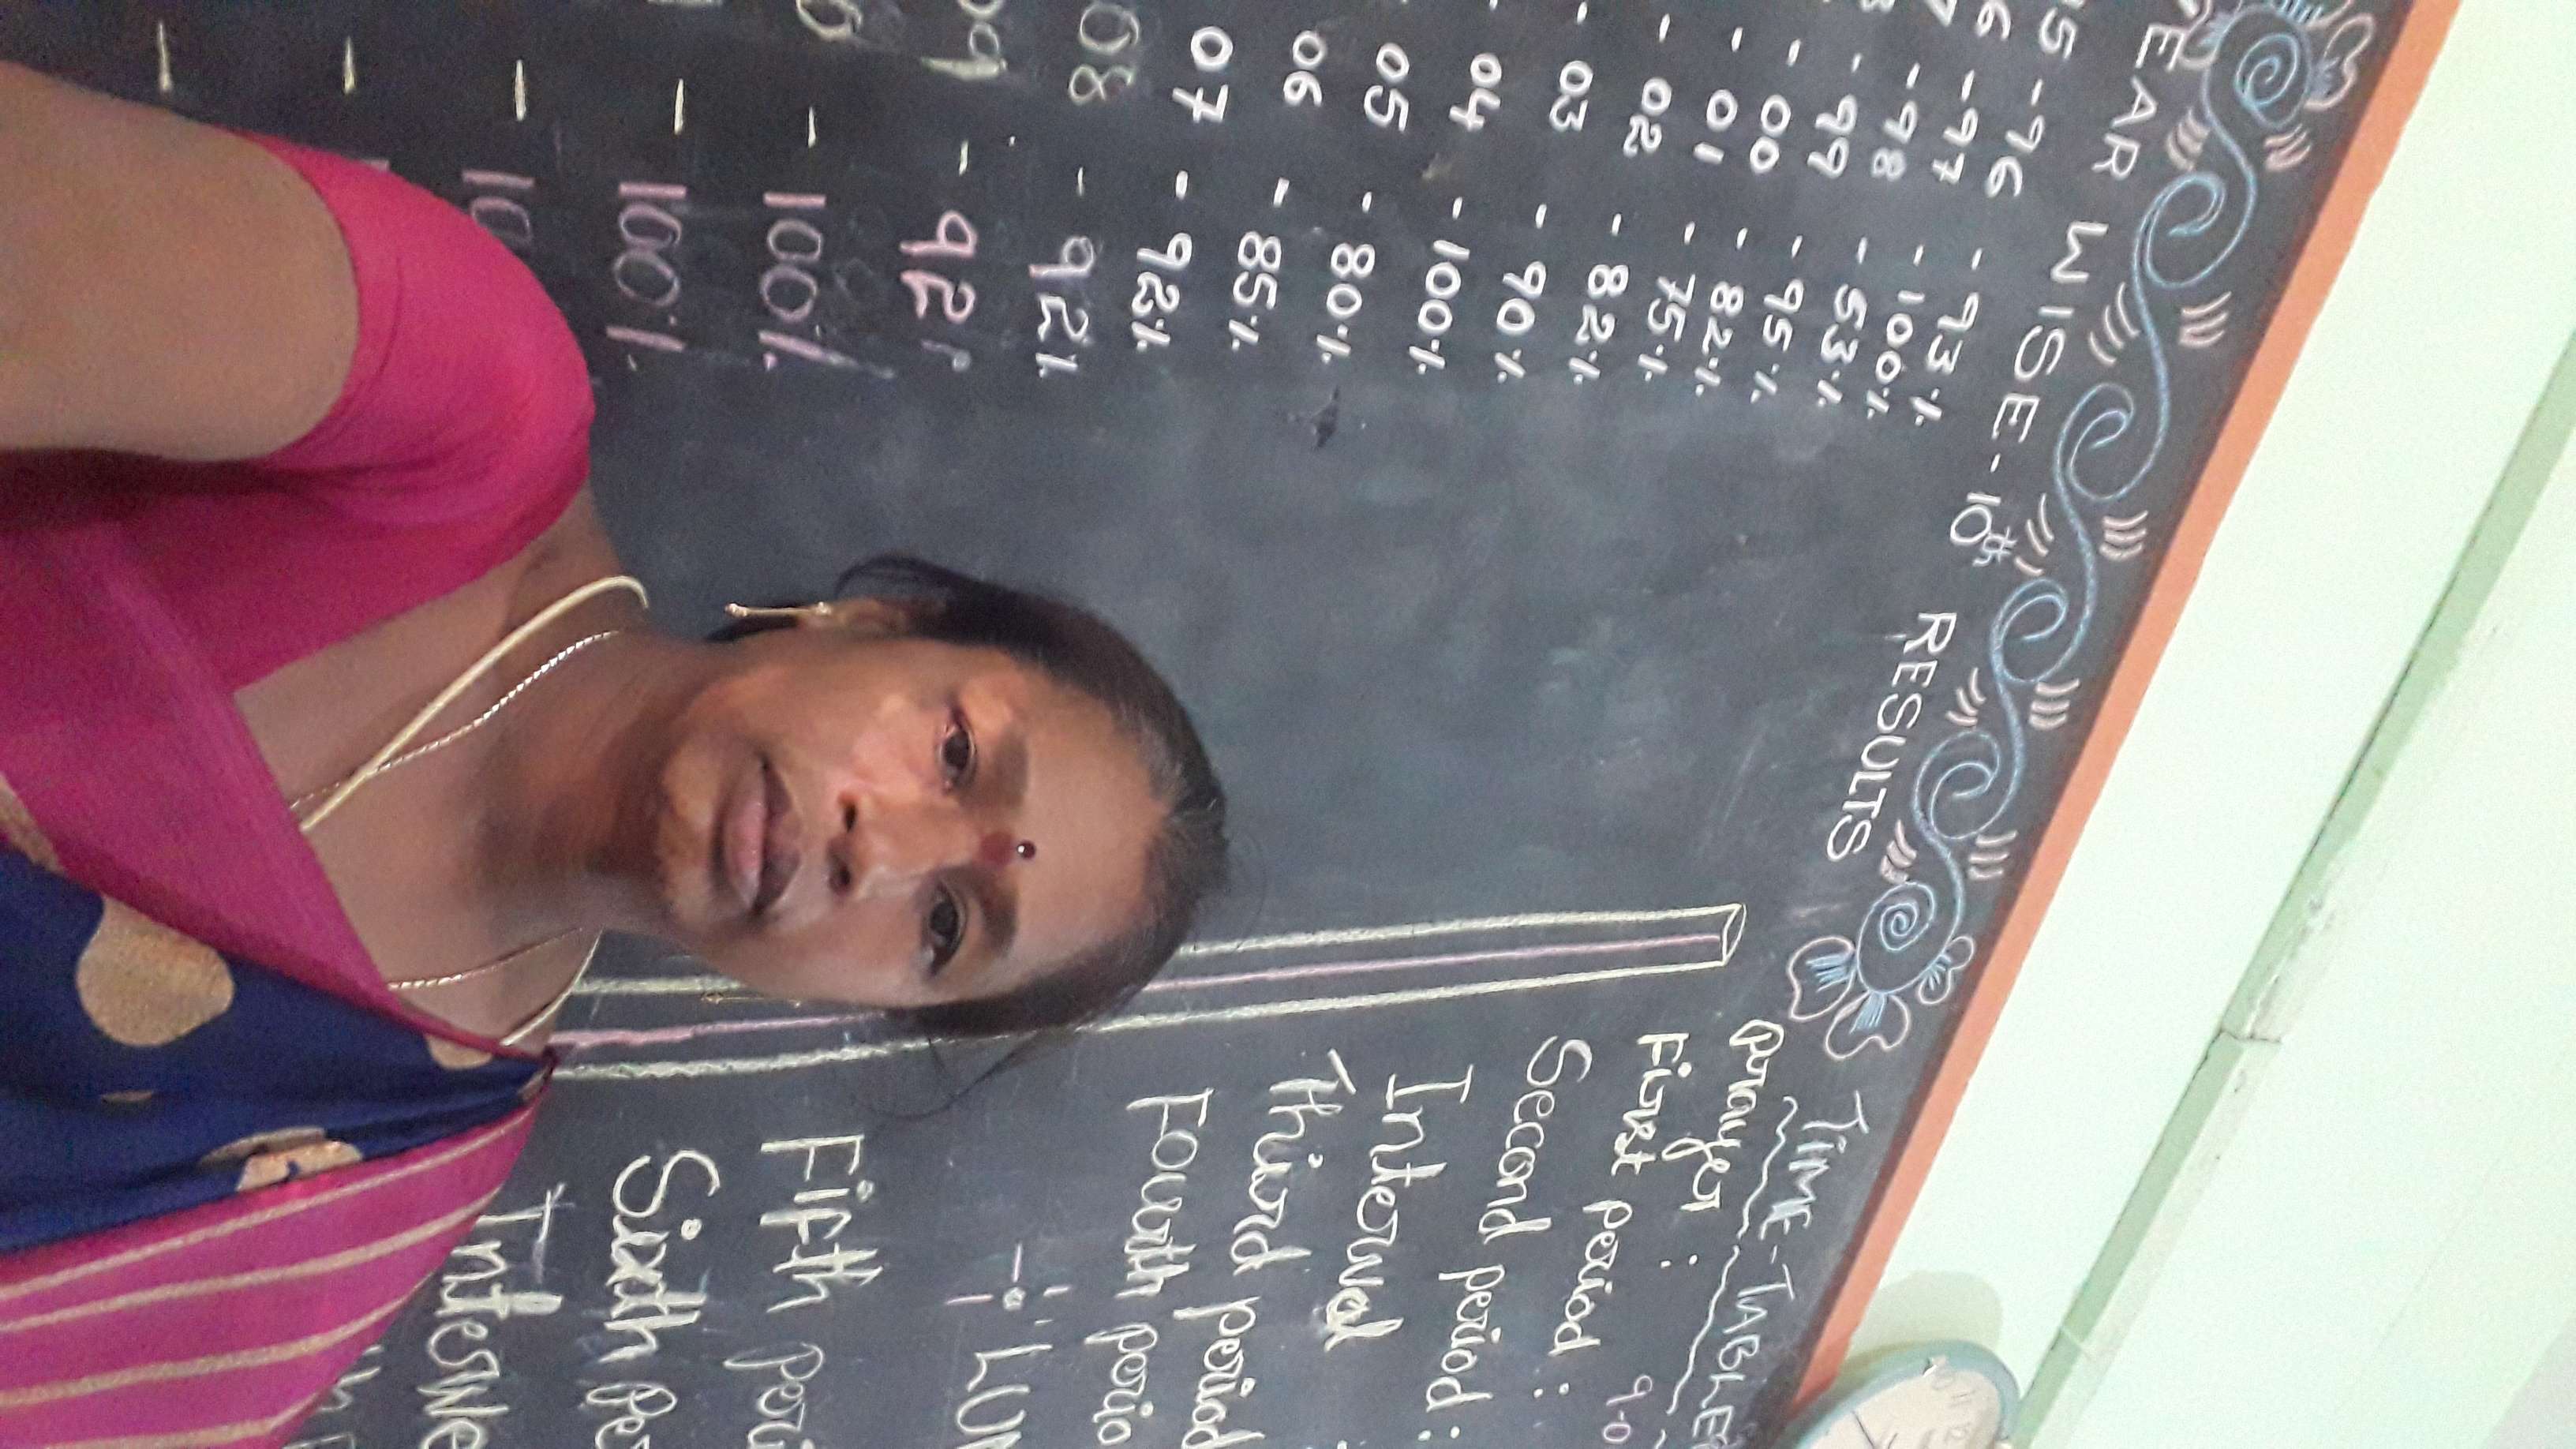 EAR WISE-10th RESULTS
-96 - 93%
-97 - 100%
-98 - 53%
-99 - 95%
-00 - 82%
-01 - 75%
-02 - 82%
-03 - 90%
-04 - 100%
05 - 80%
06 - 85%
07 - 92%
08 - 92%
09 - 92%
- 100%
- 100%
TIME-TABLE
prayer :
First period : 9-0
Second period :
Interval :
Third period
Fourth perio
LUN
Fifth peri
Sixth per
Interv